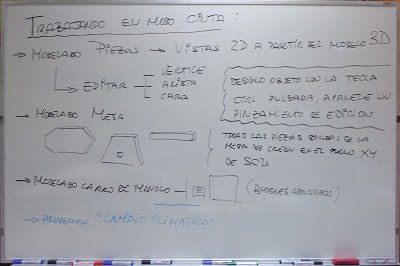 TRABAJANDO EN MODO CINTA:
→ MODELADO PIEZAS → VISTAS 2D A PARTIR DEL MODELO 3D
→ EDITAR
VERTICE
ARISTA
CARA
OBJETO CON LA TECLA
CTRL PULSADA, APARECE UN
PINZAMIENTO DE EDICION
→ MODELADO MESA
TODAS LAS PIEZAS DE LA
MESA SE CREAN EN EL XY
DE SCU
→ MODELADO CARRO DE MANOLO
→ PROYECCION "CAMBIO CLIMATICO"